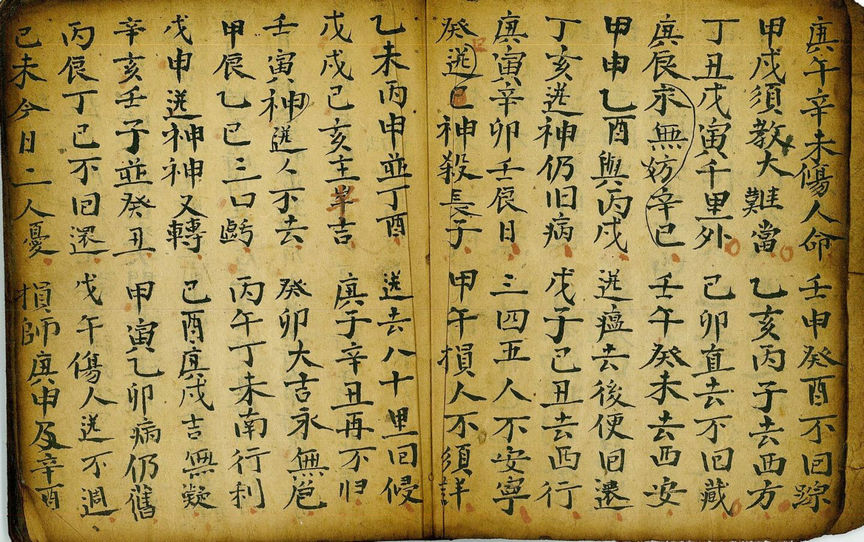 庚午辛未傷人命 壬申癸酉不回踪
甲戌須教大難當 乙亥丙子去西方
丁丑戊寅千里外 己卯直去不回藏
庚辰永無妨辛巳 壬午癸未去西安
甲申乙酉與丙戌 送瘟去後便回還
丁亥送神仍旧病 戊子己丑去西行
庚寅辛卯壬辰日 三四五人不安寧
癸送巳神殺長子 甲午損人不須詳
乙未丙申並丁酉 送去八十里回侵
戊戌己亥主羊吉 庚子辛丑再不归
壬寅神送人不去 癸卯大吉永無危
甲辰乙巳三口虧 丙午丁未南行利
戊申送神神又轉 己酉庚戌吉無凝
辛亥壬子並癸丑 甲寅乙卯病仍舊
丙辰丁巳不回還 戊午傷人送不週
己未今日二人憂 損師庚申及辛酉